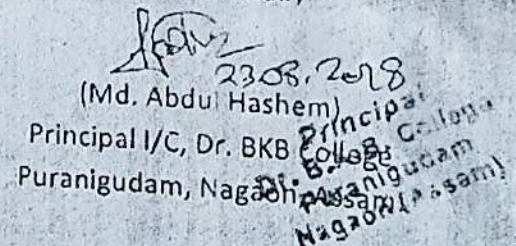 23.08.2018
(Md. Abdul Hashem)
Principal I/C, Dr. BKB College
Puranigudam, Nagaon, Assam
Principal
Dr. B. College
Puranigudam
Nagaon (Assam)